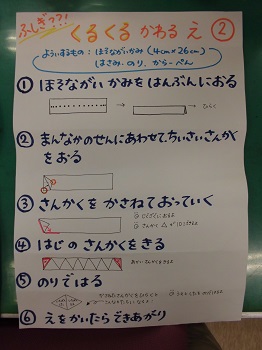 ふしぎ??!
くるくる かわる え ②
よういするもの：ほそながいかみ(4cm×26cm)
はさみ・のり、からーぺん
① ほそながい かみを はんぶんに おる
ひらく
② まんなかのせんにあわせて、ちいさいさんかく
をおる
③ さんかくを かさねて おっていく
④ はじの さんかくをきる
⑤ のりではる
⑥ えをかいたら できあがり